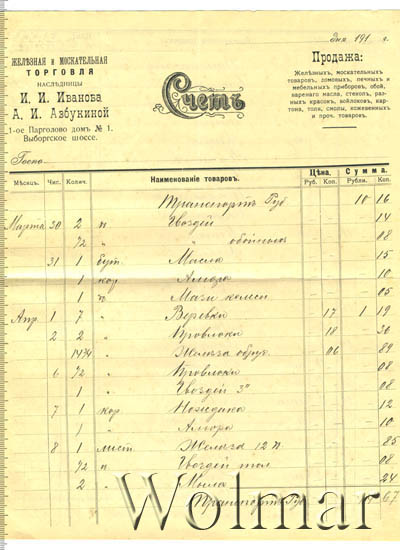 дня 191 г.
ЖЕЛѢЗНАЯ и МОСКАТЕЛЬНАЯ
ТОРГОВЛЯ
НАСЛѢДНИЦЫ
И. И. Иванова
А. И. Азбукиной
1-ое Парголово домъ № 1.
Выборгское шоссе.
Счетъ
Продажа:
Желѣзныхъ, москательныхъ
товаровъ, домовыхъ, печныхъ и
мебельныхъ приборовъ, обой,
варенаго масла, стеколъ, раз-
ныхъ красокъ, войлоковъ, кар-
тона, толя, смолы, кожевенныхъ
и проч. товаровъ.
Госпо
Мѣсяцъ. Чис. Колич. Наименованіе товаровъ. Цѣна. Сумма.
Руб. Коп. Рубли. Коп.
Транспортъ Руб 10 16
Марта 30 2 п Гвоздей 14
1/2 " обойныхъ 08
31 1 бут. Масла 15
1 кор 10
1 п. Мази колесн 05
Апр. 1 7 " Веревки 17 1 19
2 2 " Проволоки 18 36
" Желѣза обруч. 06 89
6 1/2 " Проволоки 08
1 " Гвоздей 3" 08
7 1 кор 12
1 " 10
8 1 лист. Желѣза 12 п. 85
1/2 п Гвоздей тол 08
2 " Мыла 24
Транспортъ Руб 67
Wolmar